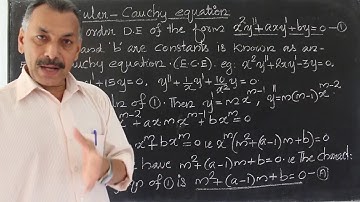 uler-Cauchy equation
order D.E of the form x²y"+axy'+by=0-①
and 'b' are constants is known as an-
-Cauchy equation.(E.C.E). eg: x²y"+xy'-3y=0.
+15y=0, y"+ y'+ y=0.
of ①. Then y=x^m, y"=m(m-1)x^{m-2}
m-2 +ax m x^{m-1}+bx^m=0
x^m+bx^m=0 i.e x^m(m²+(a-1)m+b)=0
have m²+(a-1)m+b=0. i.e The
of ① is m²+(a-1)m+b=0-②